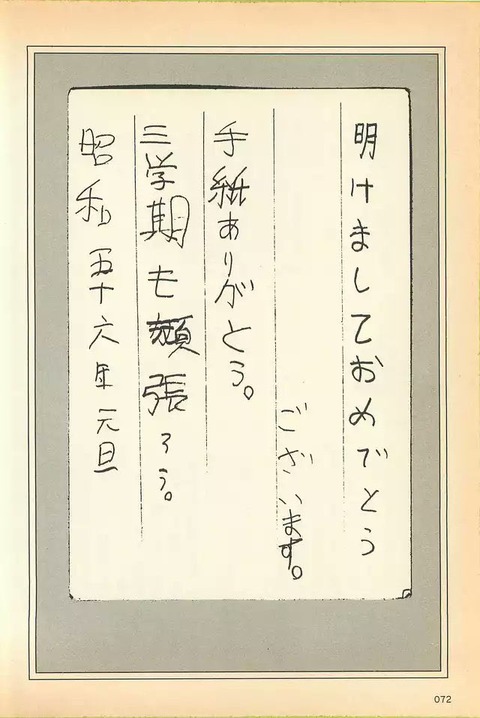 明けましておめでとう
ございます。
手紙ありがとう。
三学期も頑張ろう。
昭和五十六年元旦
072